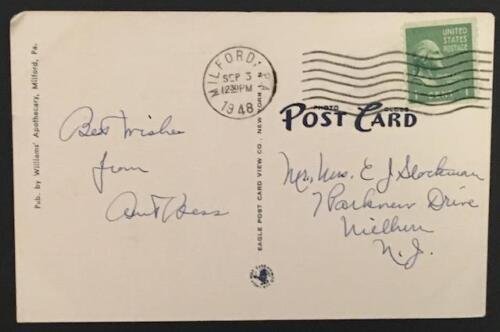 Pub. by Williams' Apothecary, Milford, Pa.
Best Wishes
from
Aunt Bess
EAGLE POST CARD VIEW CO., NEW YORK 1, N.Y.
MILFORD, PA.
SEP 3
1230PM
1948
UNITED
STATES
POSTAGE
1 CENT 1
PHOTO GLOSS
POST CARD
Mr. Mrs. E J Stockman
7 Parkview Drive
N.J.